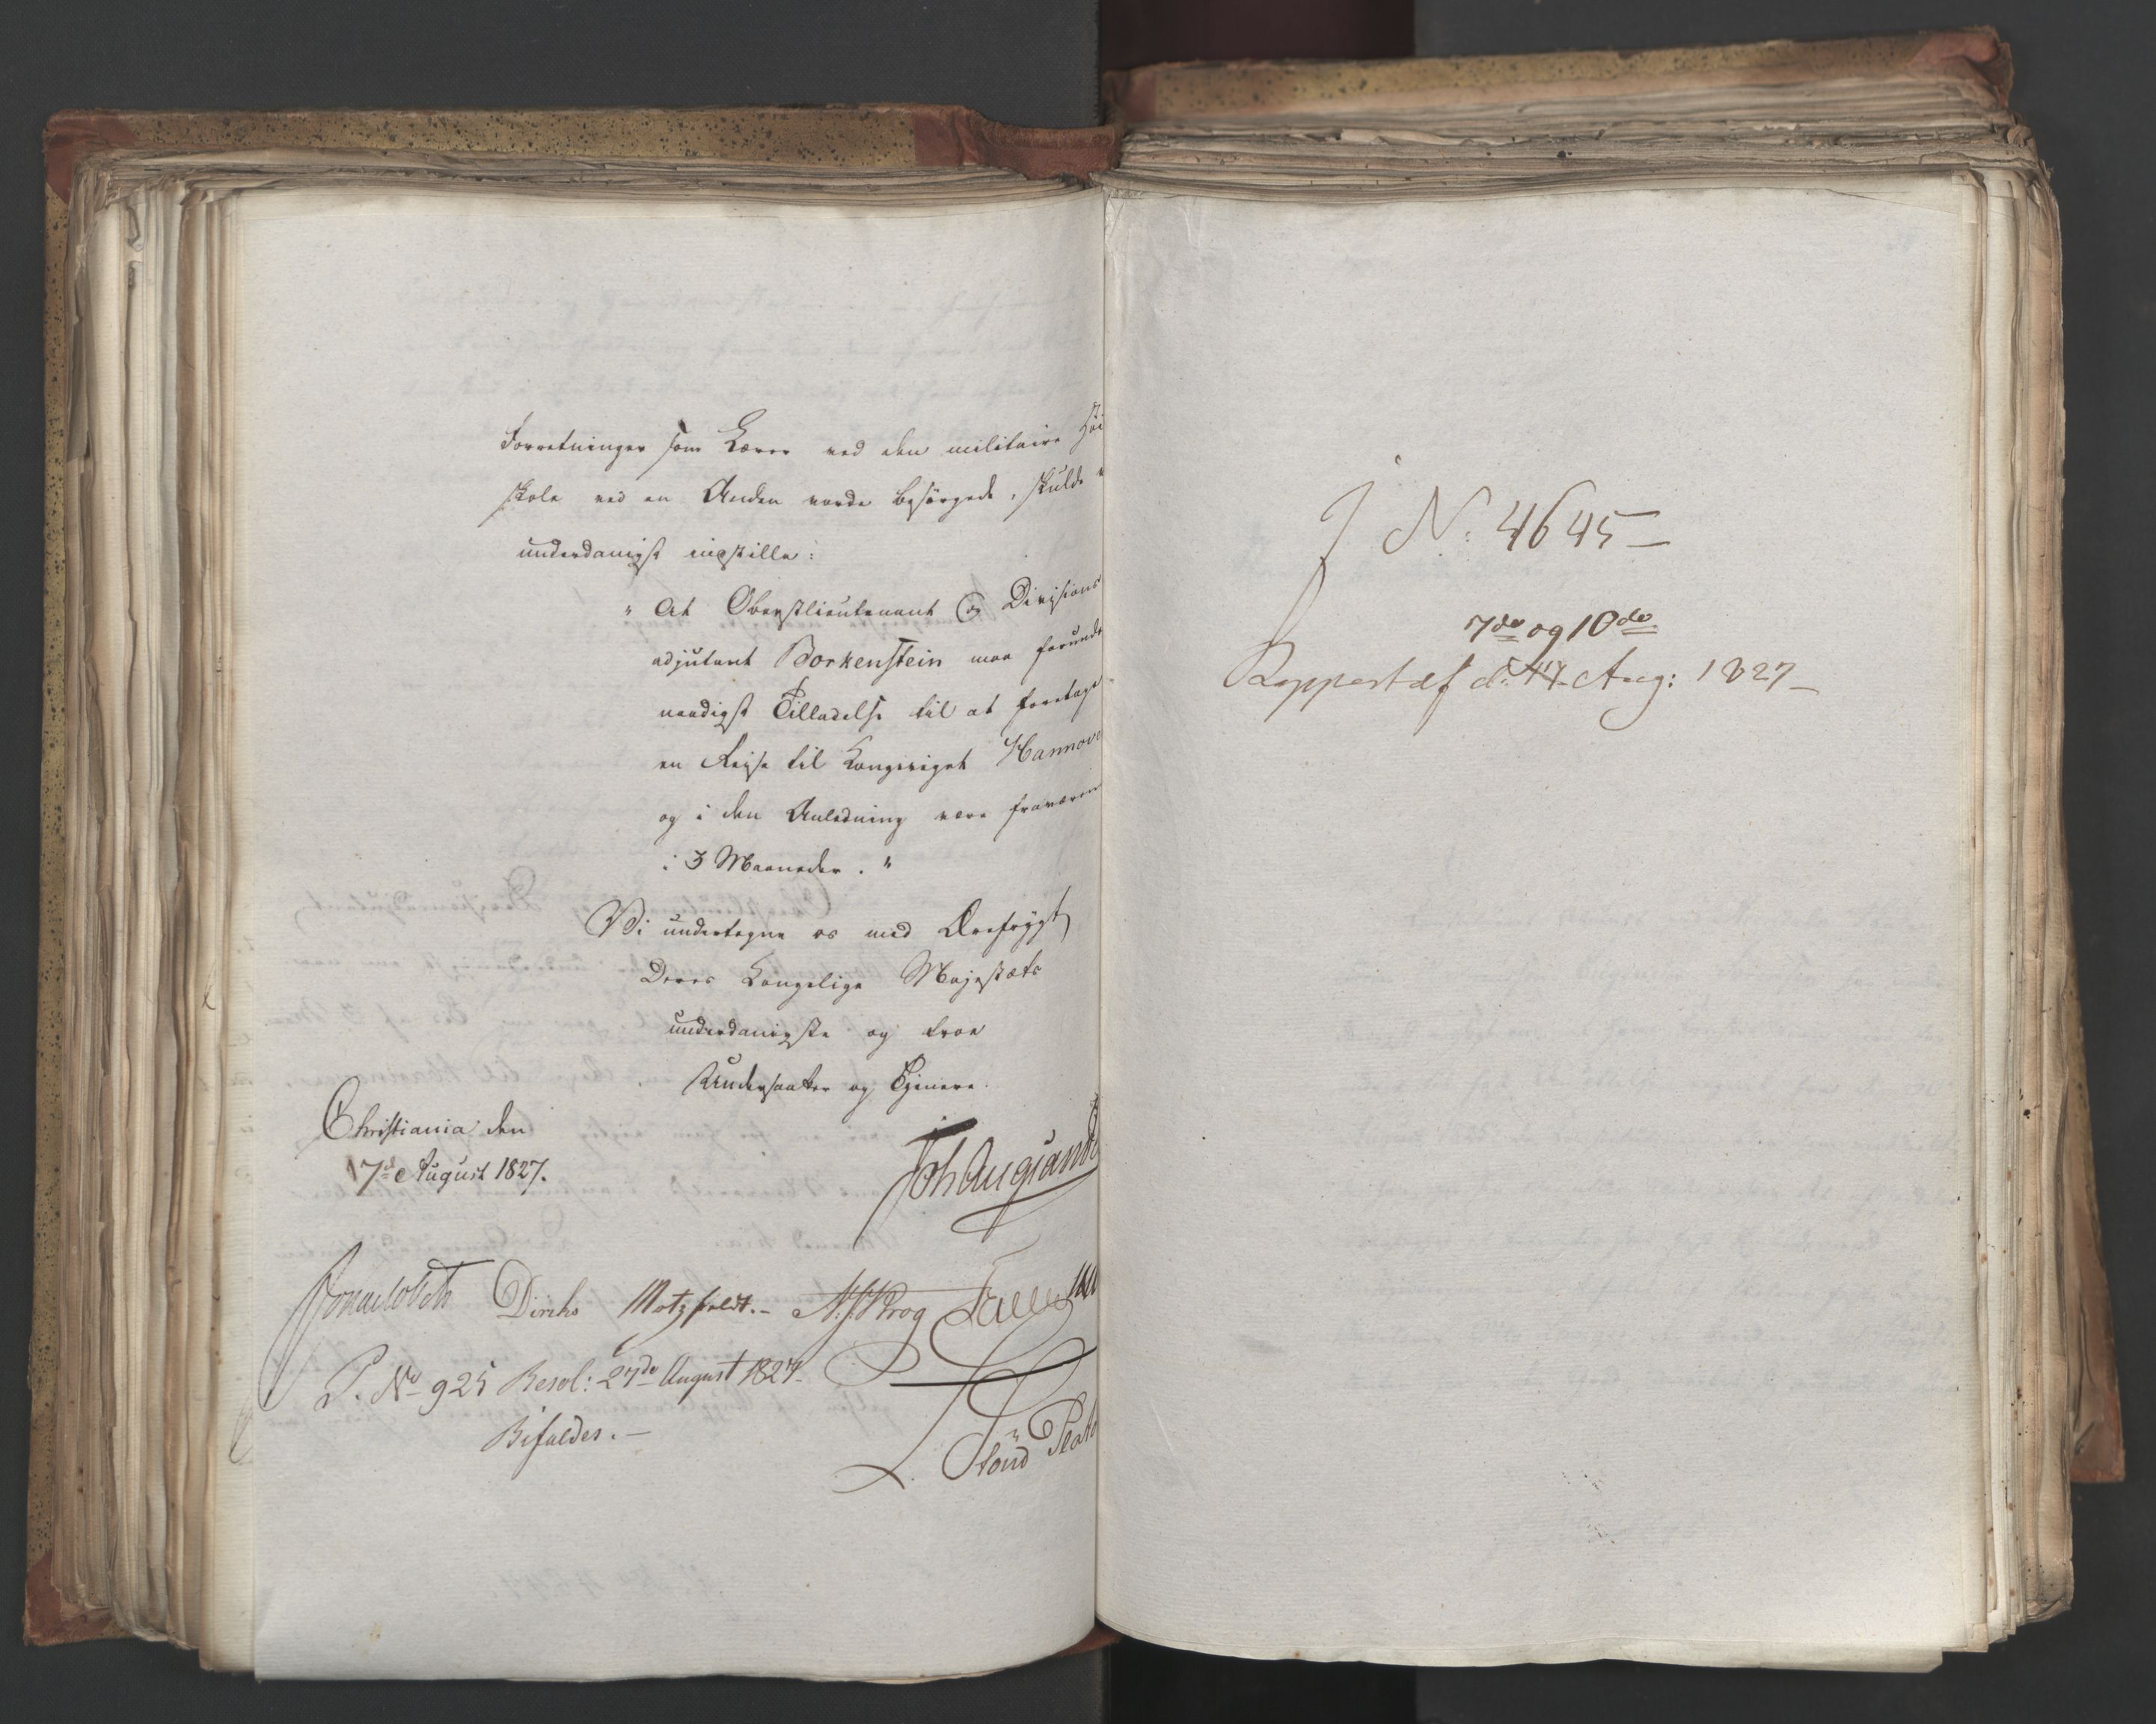 Forretninger som Lærer ved den militaire Høi
skole ved en Anden vorde besørgede, skulde v
underdanigst indstille:
" At Oberstlieutenant og Divisions
adjutant Borkenstein maa forunde
naadigst Tilladelse til at foretage
en Reise til Kongeriget Hannove
og i den Anledning være fraværen
i 3 Maaneder. "
Vi undertegne os med Ærefrygt
Deres Kongelige Majestæts
underdanigste og troe
Undersaatter og Tjenere.
Christiania den
17de August 1827.
Joh Aug Sand
Jonas Collett Diriks Motzfeldt.- Krog
P. No 925 Resol: 27de August 1827-
Bifaldes.-
J No. 4645-
7de og 10de
Rapport af d. 17. Aug: 1827-